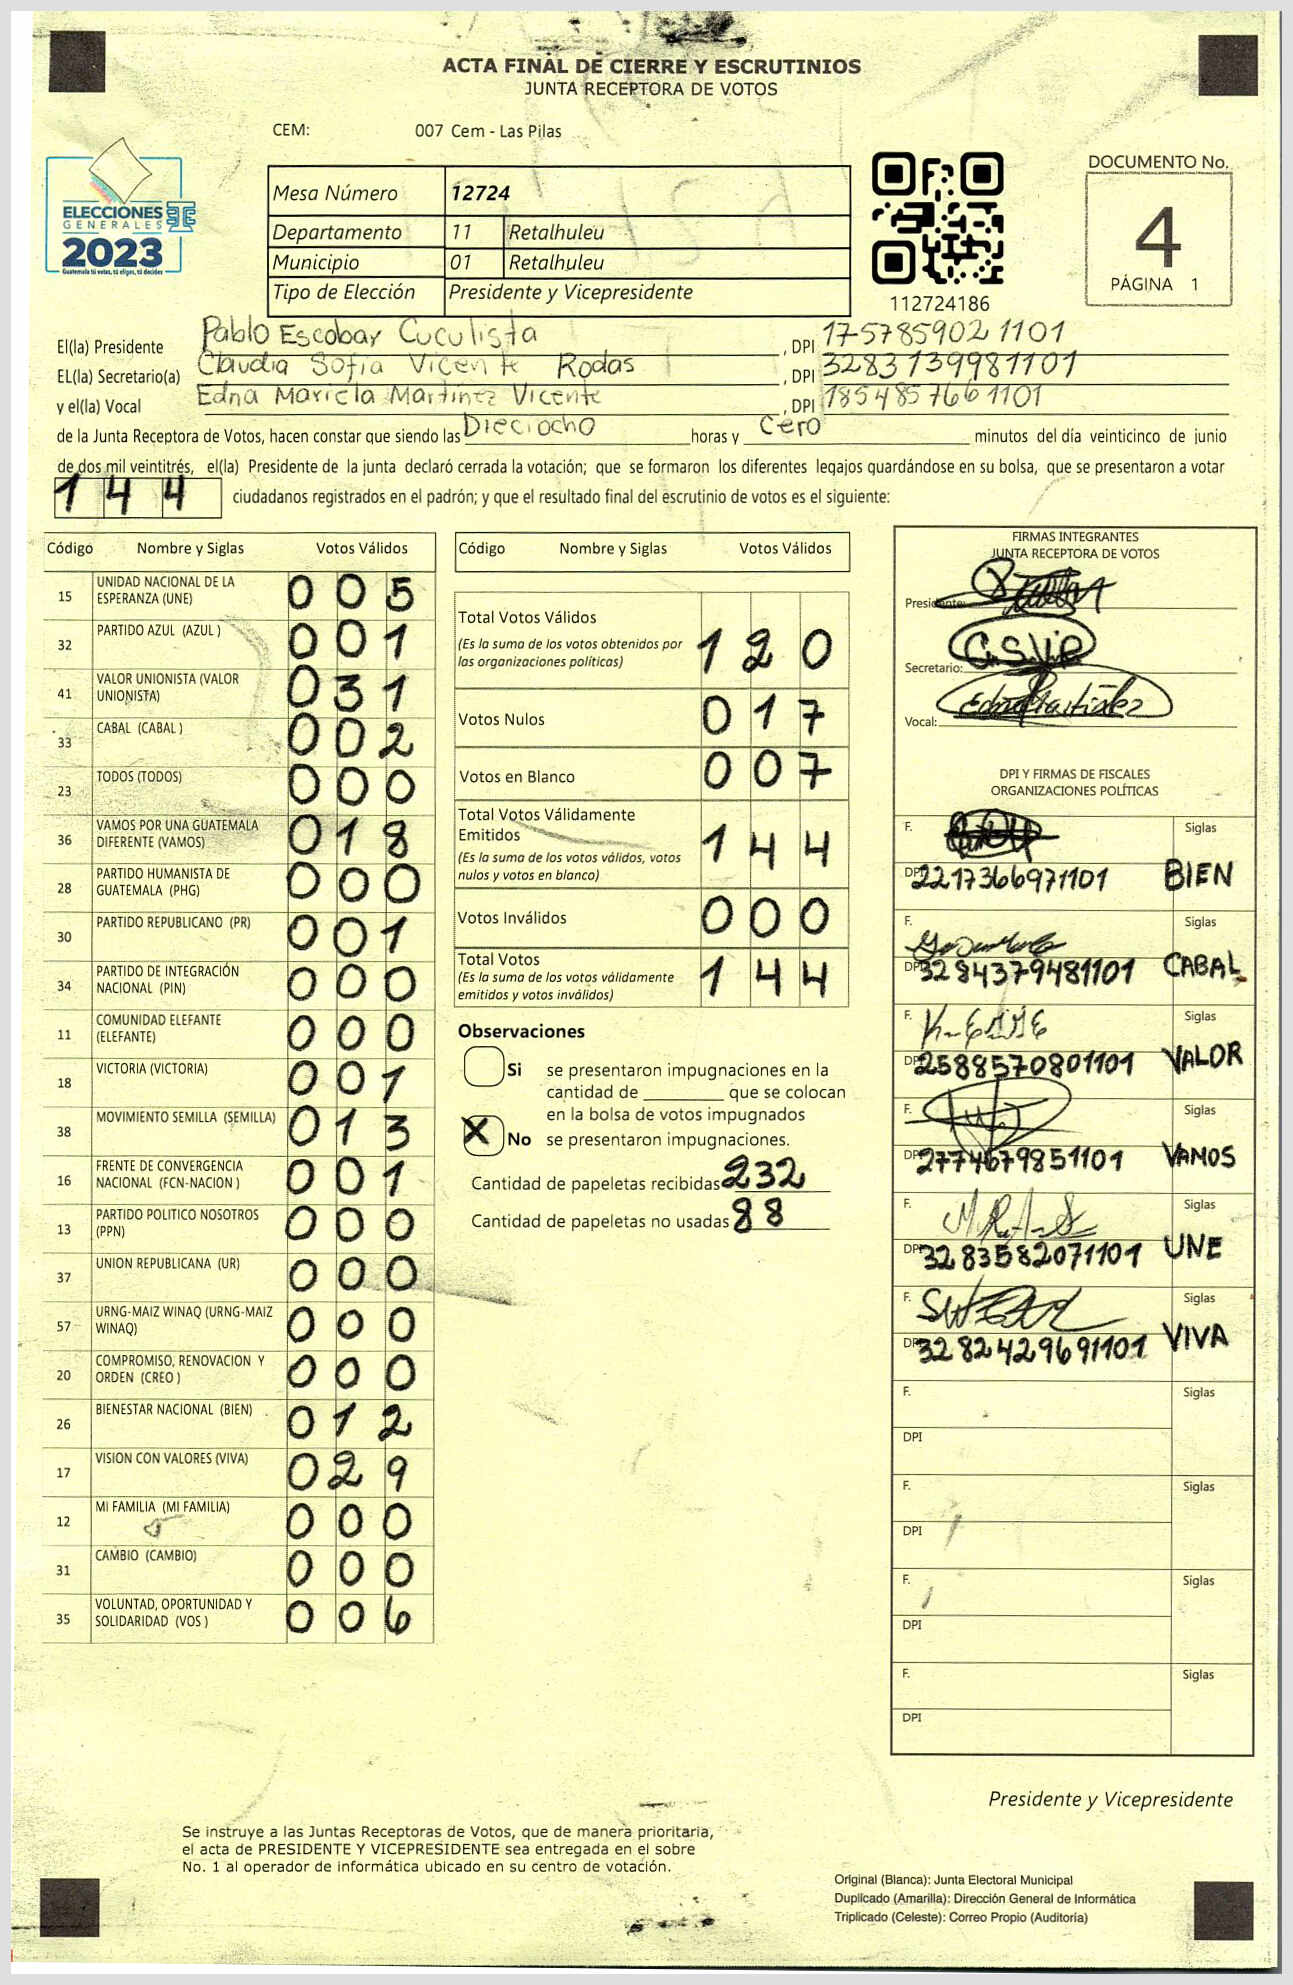 ACTA FINAL DE CIERRE Y ESCRUTINIOS
JUNTA RECEPTORA DE VOTOS
CEM: 007 Cem - Las Pilas
ELECCIONES
GENERALES
2023
Guatemala tú votas, tú eliges, tú decides
Mesa Número 12724
Departamento 11 Retalhuleu
Municipio 01 Retalhuleu
Tipo de Elección Presidente y Vicepresidente
112724186
DOCUMENTO No.
4
PÁGINA 1
El(la) Presidente Pablo Escobar Cuculista , DPI 175785902 1101
EL(la) Secretario(a) Claudia Sofía Vicente Rodas , DPI 3283139981101
y el(la) Vocal Edna Mariela Martínez Vicente , DPI 1854857661101
de la Junta Receptora de Votos, hacen constar que siendo las Dieciocho horas y Cero minutos del día veinticinco de junio
de dos mil veintitrés, el(la) Presidente de la junta declaró cerrada la votación; que se formaron los diferentes legajos guardándose en su bolsa, que se presentaron a votar
144 ciudadanos registrados en el padrón; y que el resultado final del escrutinio de votos es el siguiente:
Código Nombre y Siglas Votos Válidos
15 UNIDAD NACIONAL DE LA ESPERANZA (UNE) 005
32 PARTIDO AZUL (AZUL ) 001
41 VALOR UNIONISTA (VALOR UNIONISTA) 031
33 CABAL (CABAL ) 002
23 TODOS (TODOS) 000
36 VAMOS POR UNA GUATEMALA DIFERENTE (VAMOS) 018
28 PARTIDO HUMANISTA DE GUATEMALA (PHG) 000
30 PARTIDO REPUBLICANO (PR) 001
34 PARTIDO DE INTEGRACIÓN NACIONAL (PIN) 000
11 COMUNIDAD ELEFANTE (ELEFANTE) 000
18 VICTORIA (VICTORIA) 001
38 MOVIMIENTO SEMILLA (SEMILLA) 013
16 FRENTE DE CONVERGENCIA NACIONAL (FCN-NACION ) 001
13 PARTIDO POLITICO NOSOTROS (PPN) 000
37 UNION REPUBLICANA (UR) 000
57 URNG-MAIZ WINAQ (URNG-MAIZ WINAQ) 000
20 COMPROMISO, RENOVACION Y ORDEN (CREO ) 000
26 BIENESTAR NACIONAL (BIEN) 012
17 VISION CON VALORES (VIVA) 029
12 MI FAMILIA (MI FAMILIA) 000
31 CAMBIO (CAMBIO) 000
35 VOLUNTAD, OPORTUNIDAD Y SOLIDARIDAD (VOS ) 006
Código Nombre y Siglas Votos Válidos
Total Votos Válidos 120
(Es la suma de los votos obtenidos por
las organizaciones políticas)
Votos Nulos 017
Votos en Blanco 007
Total Votos Válidamente
Emitidos 144
(Es la suma de los votos válidos, votos
nulos y votos en blanco)
Votos Inválidos 000
Total Votos 144
(Es la suma de los votos válidamente
emitidos y votos inválidos)
Observaciones
Si se presentaron impugnaciones en la
cantidad de ________ que se colocan
en la bolsa de votos impugnados
X No se presentaron impugnaciones.
Cantidad de papeletas recibidas 232
Cantidad de papeletas no usadas 88
FIRMAS INTEGRANTES
JUNTA RECEPTORA DE VOTOS
Presidente:
Secretario:
Vocal:
DPI Y FIRMAS DE FISCALES
ORGANIZACIONES POLÍTICAS
F. Siglas
DPI 2217366971101 BIEN
F. Siglas
DPI 3284379481101 CABAL
F. Siglas
DPI 2588570801101 VALOR
F. Siglas
DPI 2774679851101 VAMOS
F. Siglas
DPI 3283582071101 UNE
F. Siglas
DPI 3282429691101 VIVA
F. Siglas
DPI
F. Siglas
DPI
F. Siglas
DPI
F. Siglas
DPI
Presidente y Vicepresidente
Se instruye a las Juntas Receptoras de Votos, que de manera prioritaria,
el acta de PRESIDENTE Y VICEPRESIDENTE sea entregada en el sobre
No. 1 al operador de informática ubicado en su centro de votación.
Original (Blanca): Junta Electoral Municipal
Duplicado (Amarilla): Dirección General de Informática
Triplicado (Celeste): Correo Propio (Auditoría)